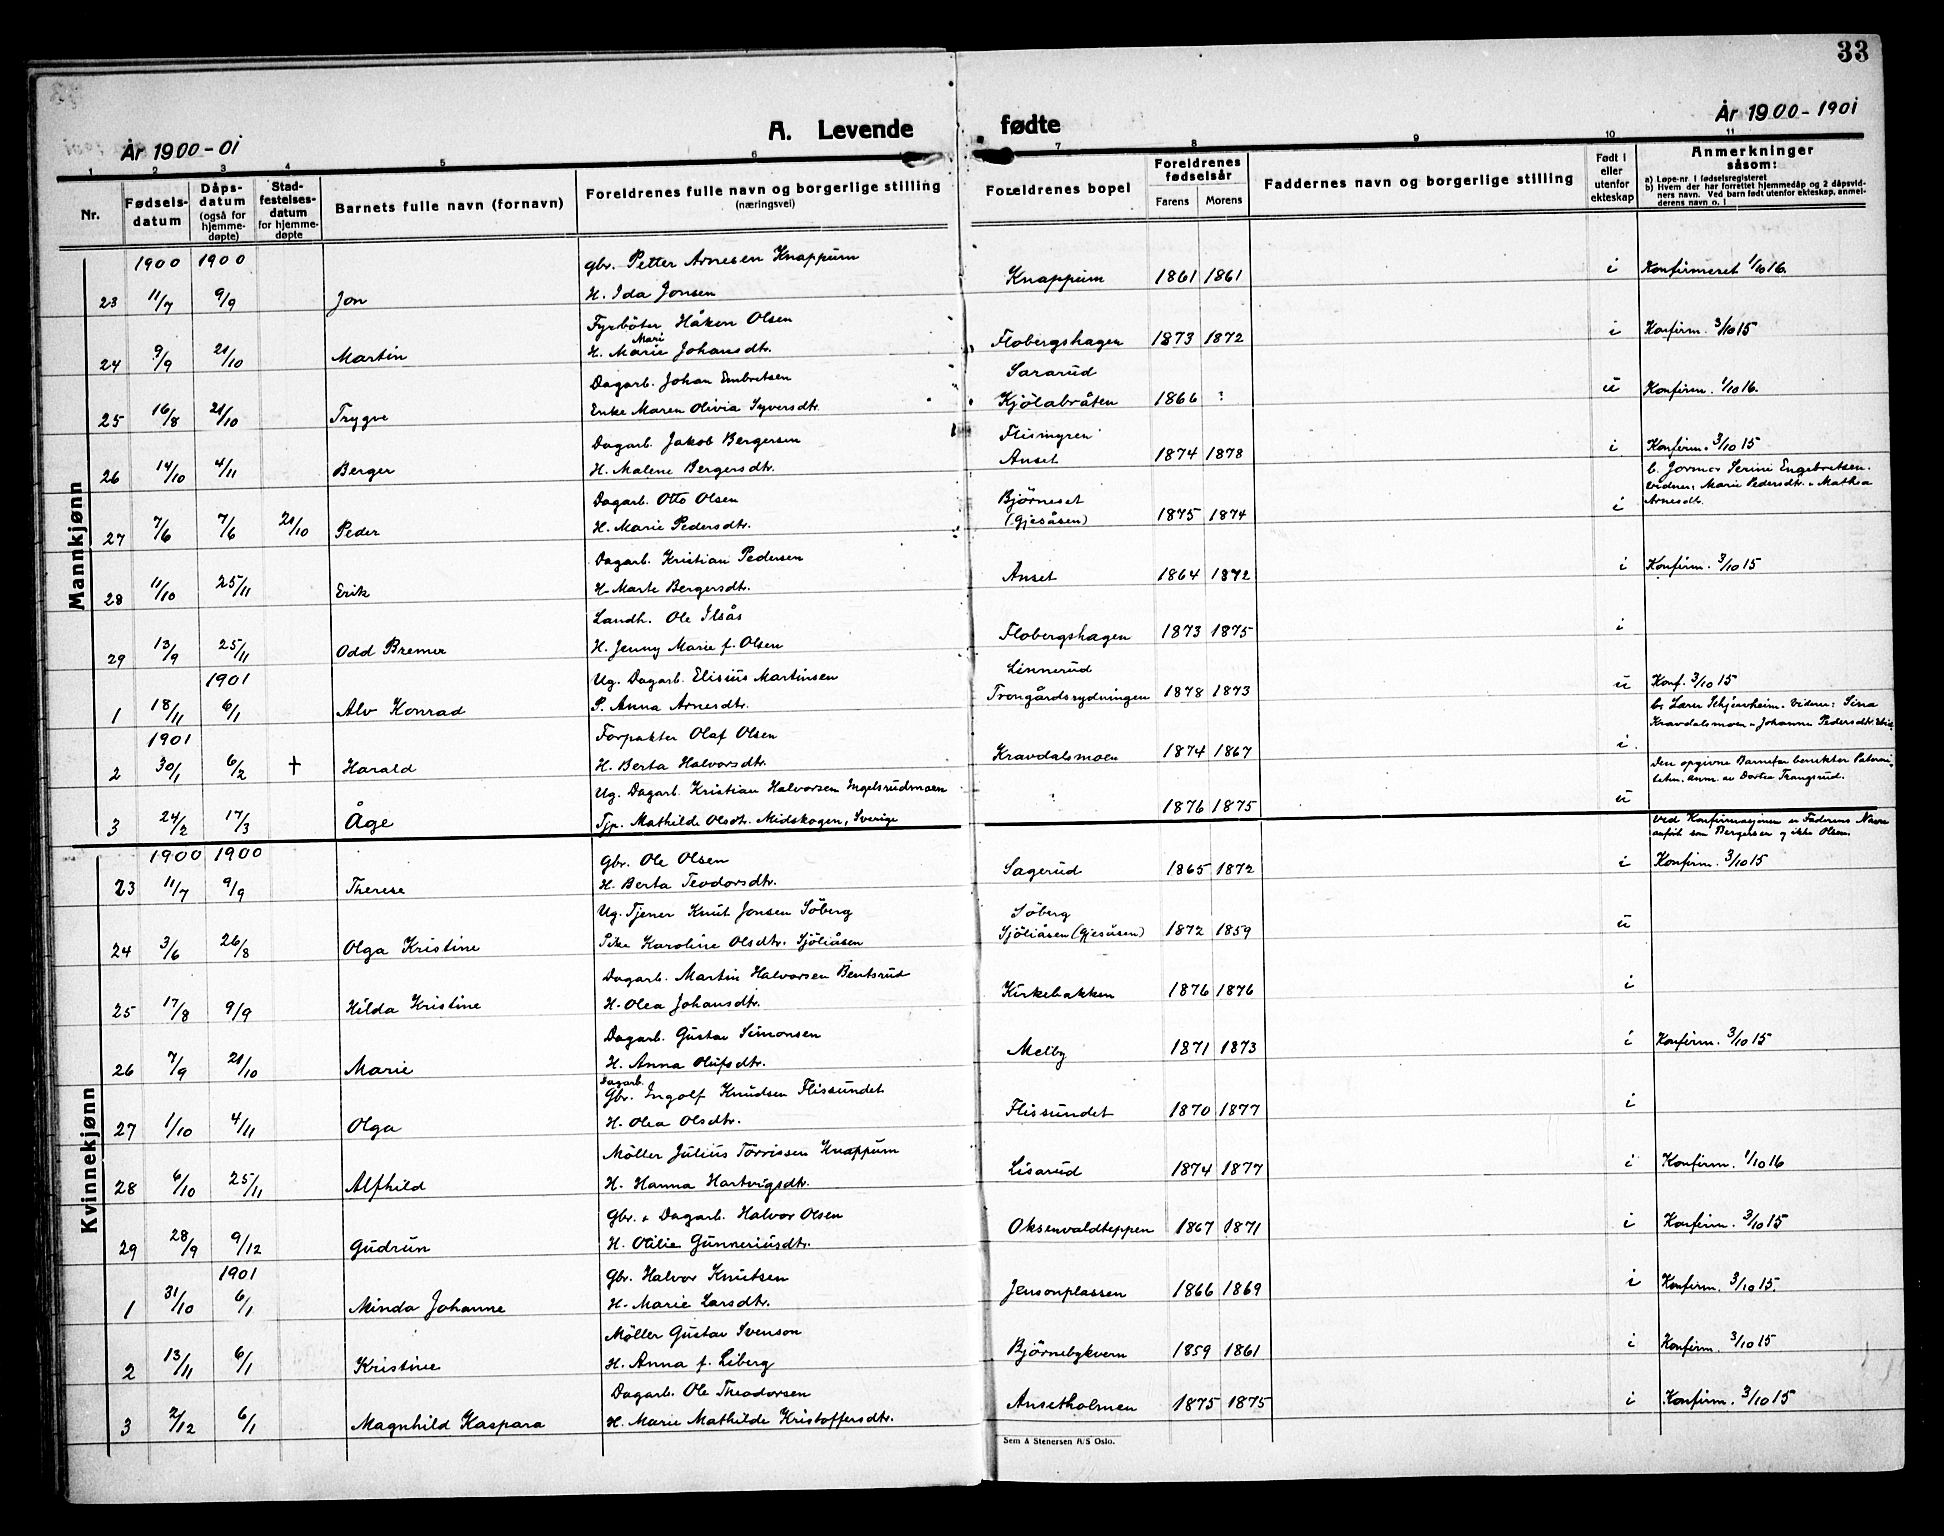 33
År 1900-01
A. Levende
fødte
År 1900-1901
1 2 3 4 5 6 7 8 9 10 11
Nr.
Fødsels-
datum
Dåps-
datum
(også for
hjemme-
døpte)
Stad-
festelses-
datum
for hjemme-
døpte
Barnets fulle navn (fornavn)
Foreldrenes fulle navn og borgerlige stilling
(næringsvei)
Foreldrenes bopel
Foreldrenes
fødselsår
Farens Morens
Faddernes navn og borgerlige stilling
Født i
eller
utenfor
ekteskap
Anmerkninger
såsom:
a) Løpe-nr. i fødselsregisteret
b) Hvem der har forrettet hjemmedåp og 2 dåpsvid-
ners navn. Ved barn født utenfor ekteskap, anmel-
derens navn o. l
Mannkjønn
1900 1900
Gbr. Petter Arnesen Knappum
23 11/7 9/9 Jon H. Ida Jonsen Knappum 1861 1861 i Konfirmeret 1/10 16.
Fyrböter Håken Olsen
Mari
24 9/9 21/10 Martin H. Marie Johansdtr. Flobergshagen 1873 1872 i Konfirm. 3/10 15
Dagarb. Johan Embretsen Sararud
25 16/8 21/10 Trygve Enke Maren Olivia Syversdtr. Kjölabråten 1866 ? u Konfirm. 1/10 16.
Dagarb. Jakob Bergersen Flismyren
26 14/10 4/11 Berger H. Malene Bergersdtr. Anset 1874 1878 i Konfirm. 3/10 15
Dagarb. Otto Olsen Bjørneset b. Jormor Serine Engebretsen.
27 7/6 7/6 21/10 Peder H. Marie Pedersdtr. (Gjesåsen) 1875 1874 i Vidner: Marie Pedersdtr. Mathea
Arnesdtr.
Dagarb. Kristian Pedersen
28 11/10 25/11 Erik H. Marte Bergersdtr. Anset 1864 1872 i Konfirm. 3/10 15
Landh. Ole Ilsås
29 13/9 25/11 Odd Bremer H. Jenny Marie f. Olsen Flobergshagen 1873 1875 i
1901
Ug. Dagarb. Elisius Martinsen Linnerud
1 18/11 6/1 Alv Konrad P. Anna Arnesdtr. Trongårdsrydningen 1878 1873 u Konf. 3/10 15
1901
Forpakter Olaf Olsen b. Lærer Schjenheim. Vidner: Sina
2 30/1 6/2 † Harald H. Berta Halvorsdtr. Kravdalsmoen 1874 1867 i Kravdalsmoen, Johanne Pedersdtr.
Ug. Dagarb. Kristian Halvorsen Ingelsrudmoen Den opgivne Barnefar benekter Paterni-
3 24/2 17/3 Åge Tjp. Mathilde Olsdtr. Midskogen, Sverige 1876 1875 u teten. anm. av Dortea Trangsrud.
Kvinnekjønn
1900 1900
Ved Konfirmasjonen er Faderens Navn
anført som Bergelsen og ikke Olsen.
Gbr. Ole Olsen
23 11/7 9/9 Therese H. Berta Teodorsdtr. Sagerud 1865 1872 i Konfirm. 3/10 15
Ug. Tjener Knut Jonsen Söberg Söberg
24 3/6 26/8 Olga Kristine Pike Karoline Olsdtr. Sjöliåsen Sjöliåsen (Gjesåsen) 1872 1859 u
Dagarb. Martin Halvorsen Bentsrud
25 17/8 9/9 Hilda Kristine H. Olea Johansdtr. Kirkebakken 1876 1876 i
Dagarb. Gustav Simonsen
26 7/9 21/10 Marie H. Anna Olufsdtr. Melby 1871 1873 i Konfirm. 3/10 15
Dagarb.
Gbr. Ingolf Knudsen Flissundet
27 1/10 4/11 Olga H. Olea Olsdtr. Flissundet 1870 1877 i
Möller Julius Torrissen Knappum
28 6/10 25/11 Alfhild H. Hanna Hartvigsdtr. Lisarud 1874 1877 i Konfirm. 1/10 16
Gbr. + Dagarb. Halvor Olsen
29 28/9 9/12 Gudrun H. Otilie Gunneriusdtr. Oksenvaldteppen 1867 1871 i Konfirm. 3/10 15
1901
Gbr. Halvor Knutsen
1 31/10 6/1 Minda Johanne H. Marie Larsdtr. Jensonplassen 1866 1869 i Konfirm. 3/10 15.
Möller Gustav Svenson
2 13/11 6/1 Kristine H. Anna f. Liberg Bjørnebykvern 1859 1861 i Konfirm. 3/10 15
Dagarb. Ole Theodorsen
3 2/12 6/1 Magnhild Kaspara H. Marie Mathilde Kristoffersdtr. Ansetholmen 1875 1875 i Konfirm. 3/10 15
Sem & Stenersen A/S Oslo.